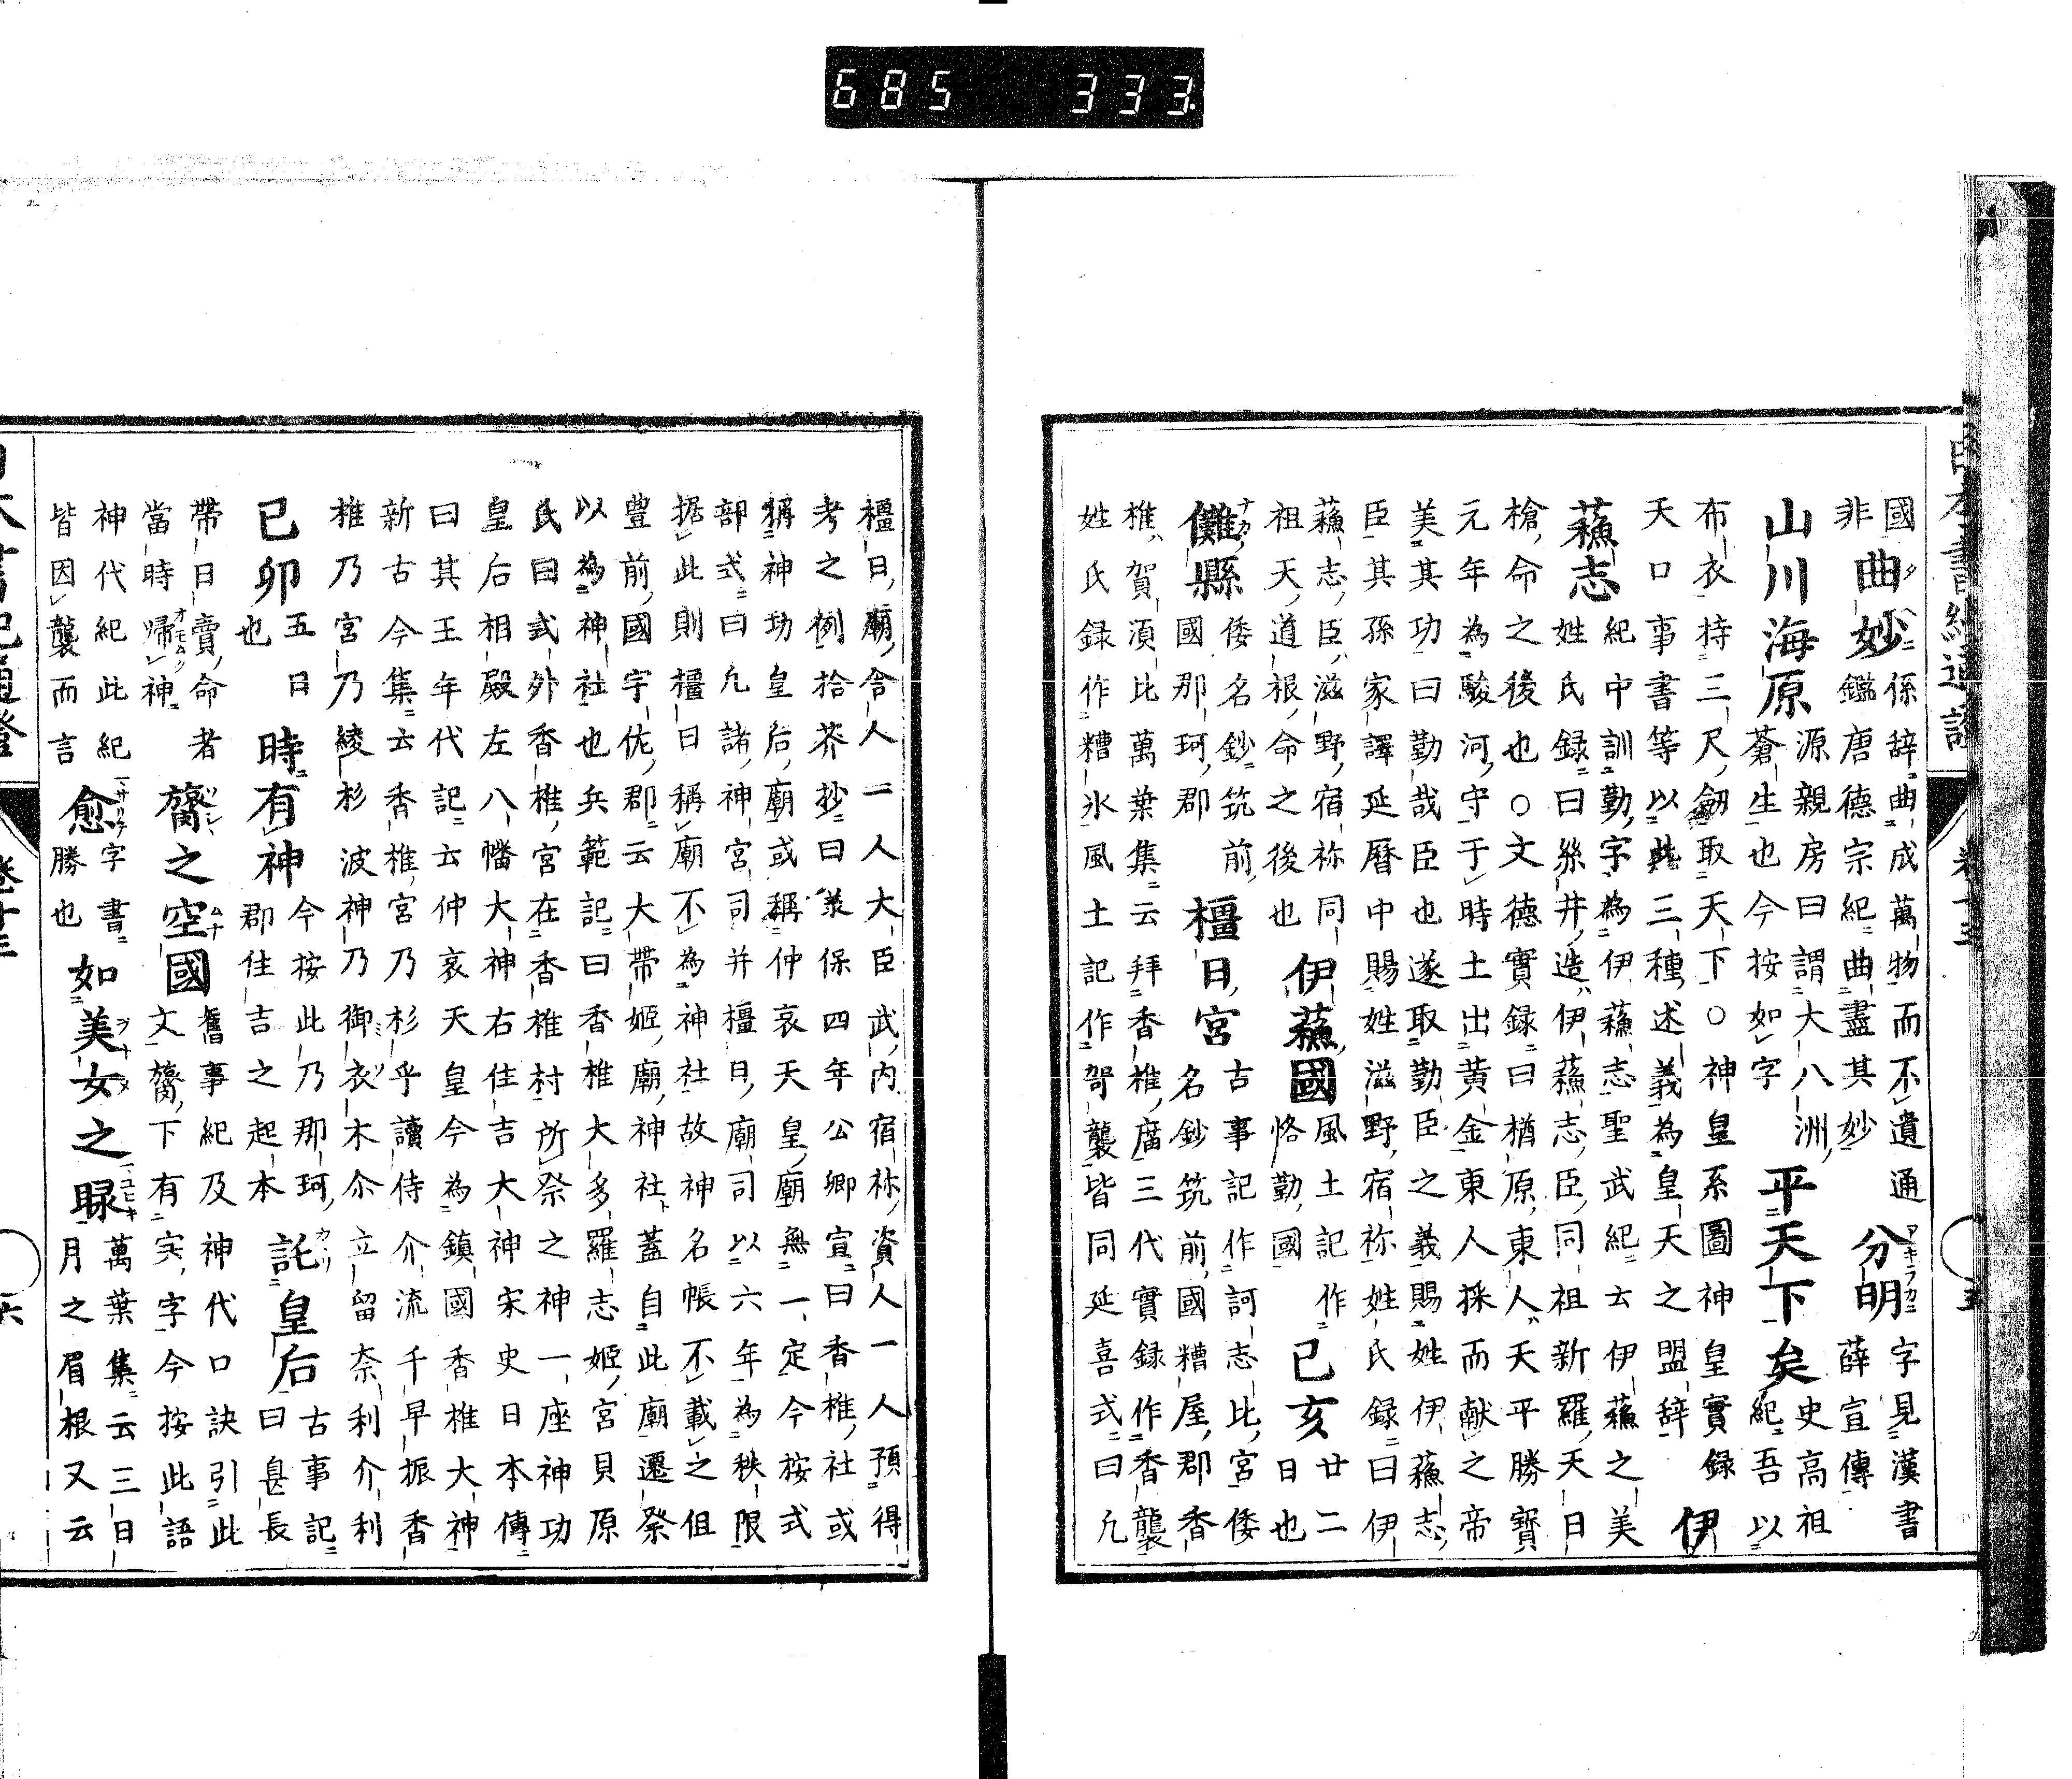 685 333
國
非
曲妙
係辞曲成萬物而不遺通
鑑唐德宗紀曲盡其妙
分明
字見漢書
薛宣傳
山川海原
源親房曰謂大八洲
蒼生也今按如字
平天下矣
史高祖
紀吾以
布衣持三尺劔取天下○神皇系圖神皇實録
天口事書等以此三種述義為皇天之盟辞
伊
蘓志
紀中訓勤字為伊蘓志聖武紀云伊蘓之美
姓氏録曰絲井造伊蘓志臣同祖新羅天日
槍命之後也○文德實録曰楢原東人天平勝寳
元年為駿河守于時土出黄金東人採而献之帝
美其功曰勤哉臣也遂取勤臣之義賜姓伊蘓志
臣其孫家譯延暦中賜姓滋野宿祢姓氏録曰伊
蘓志臣滋野宿祢同
祖天道根命之後也
伊蘓國
風土記作
恪勤國
己亥
廿二
日也
儺縣
倭名鈔筑前
國那珂郡
橿日宮
古事記作訶志比宮倭
名鈔筑前國糟屋郡香
椎賀須比萬葉集云拜香椎廟三代實録作香襲
姓氏録作糟氷風土記作哿襲皆同延喜式曰凢
橿日廟舎人一人大臣武内宿祢資人一人預得
考之例拾芥抄曰兼保四年公卿宣曰香椎社或
稱神功皇后廟或稱仲哀天皇廟無一定今按式
部式曰凢諸神宮司并橿日廟司以六年為秩限
据此則橿日稱廟不為神社故神名帳不載之但
豊前國宇佐郡云大帶姫廟神社蓋自此廟遷祭
以為神社也兵範記曰香椎大多羅志姫宮貝原
氏曰式外香椎宮在香椎村所祭之神一座神功
皇后相殿左八幡大神右住吉大神宋史日本傳
曰其王年代記云仲哀天皇今為鎮國香椎大神
新古今集云香椎宮乃杉乎讀侍介流千早振香
椎乃宮乃綾杉波神乃御衣木尒立留奈利介利
己卯
五日
也
時有神
今按此乃那珂
郡住吉之起本
託皇后
古事記
曰息長
帶日賣命
當時帰神
者
膂之空國
舊事紀及神代口訣引此
文膂下有宍字今按此語
神代紀此紀
皆因襲而言
愈
字書
勝也
如美女之睩
萬葉集云三日
月之眉根又云